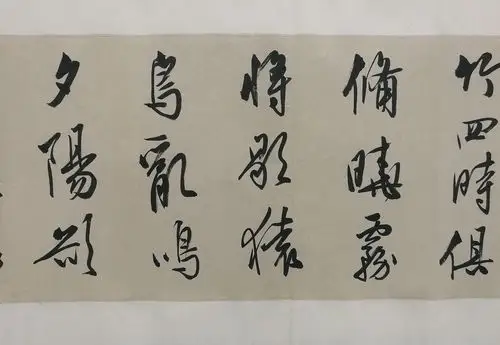 竹四時俱
備曉霧
將歇猿
鳥亂鳴
夕陽欲